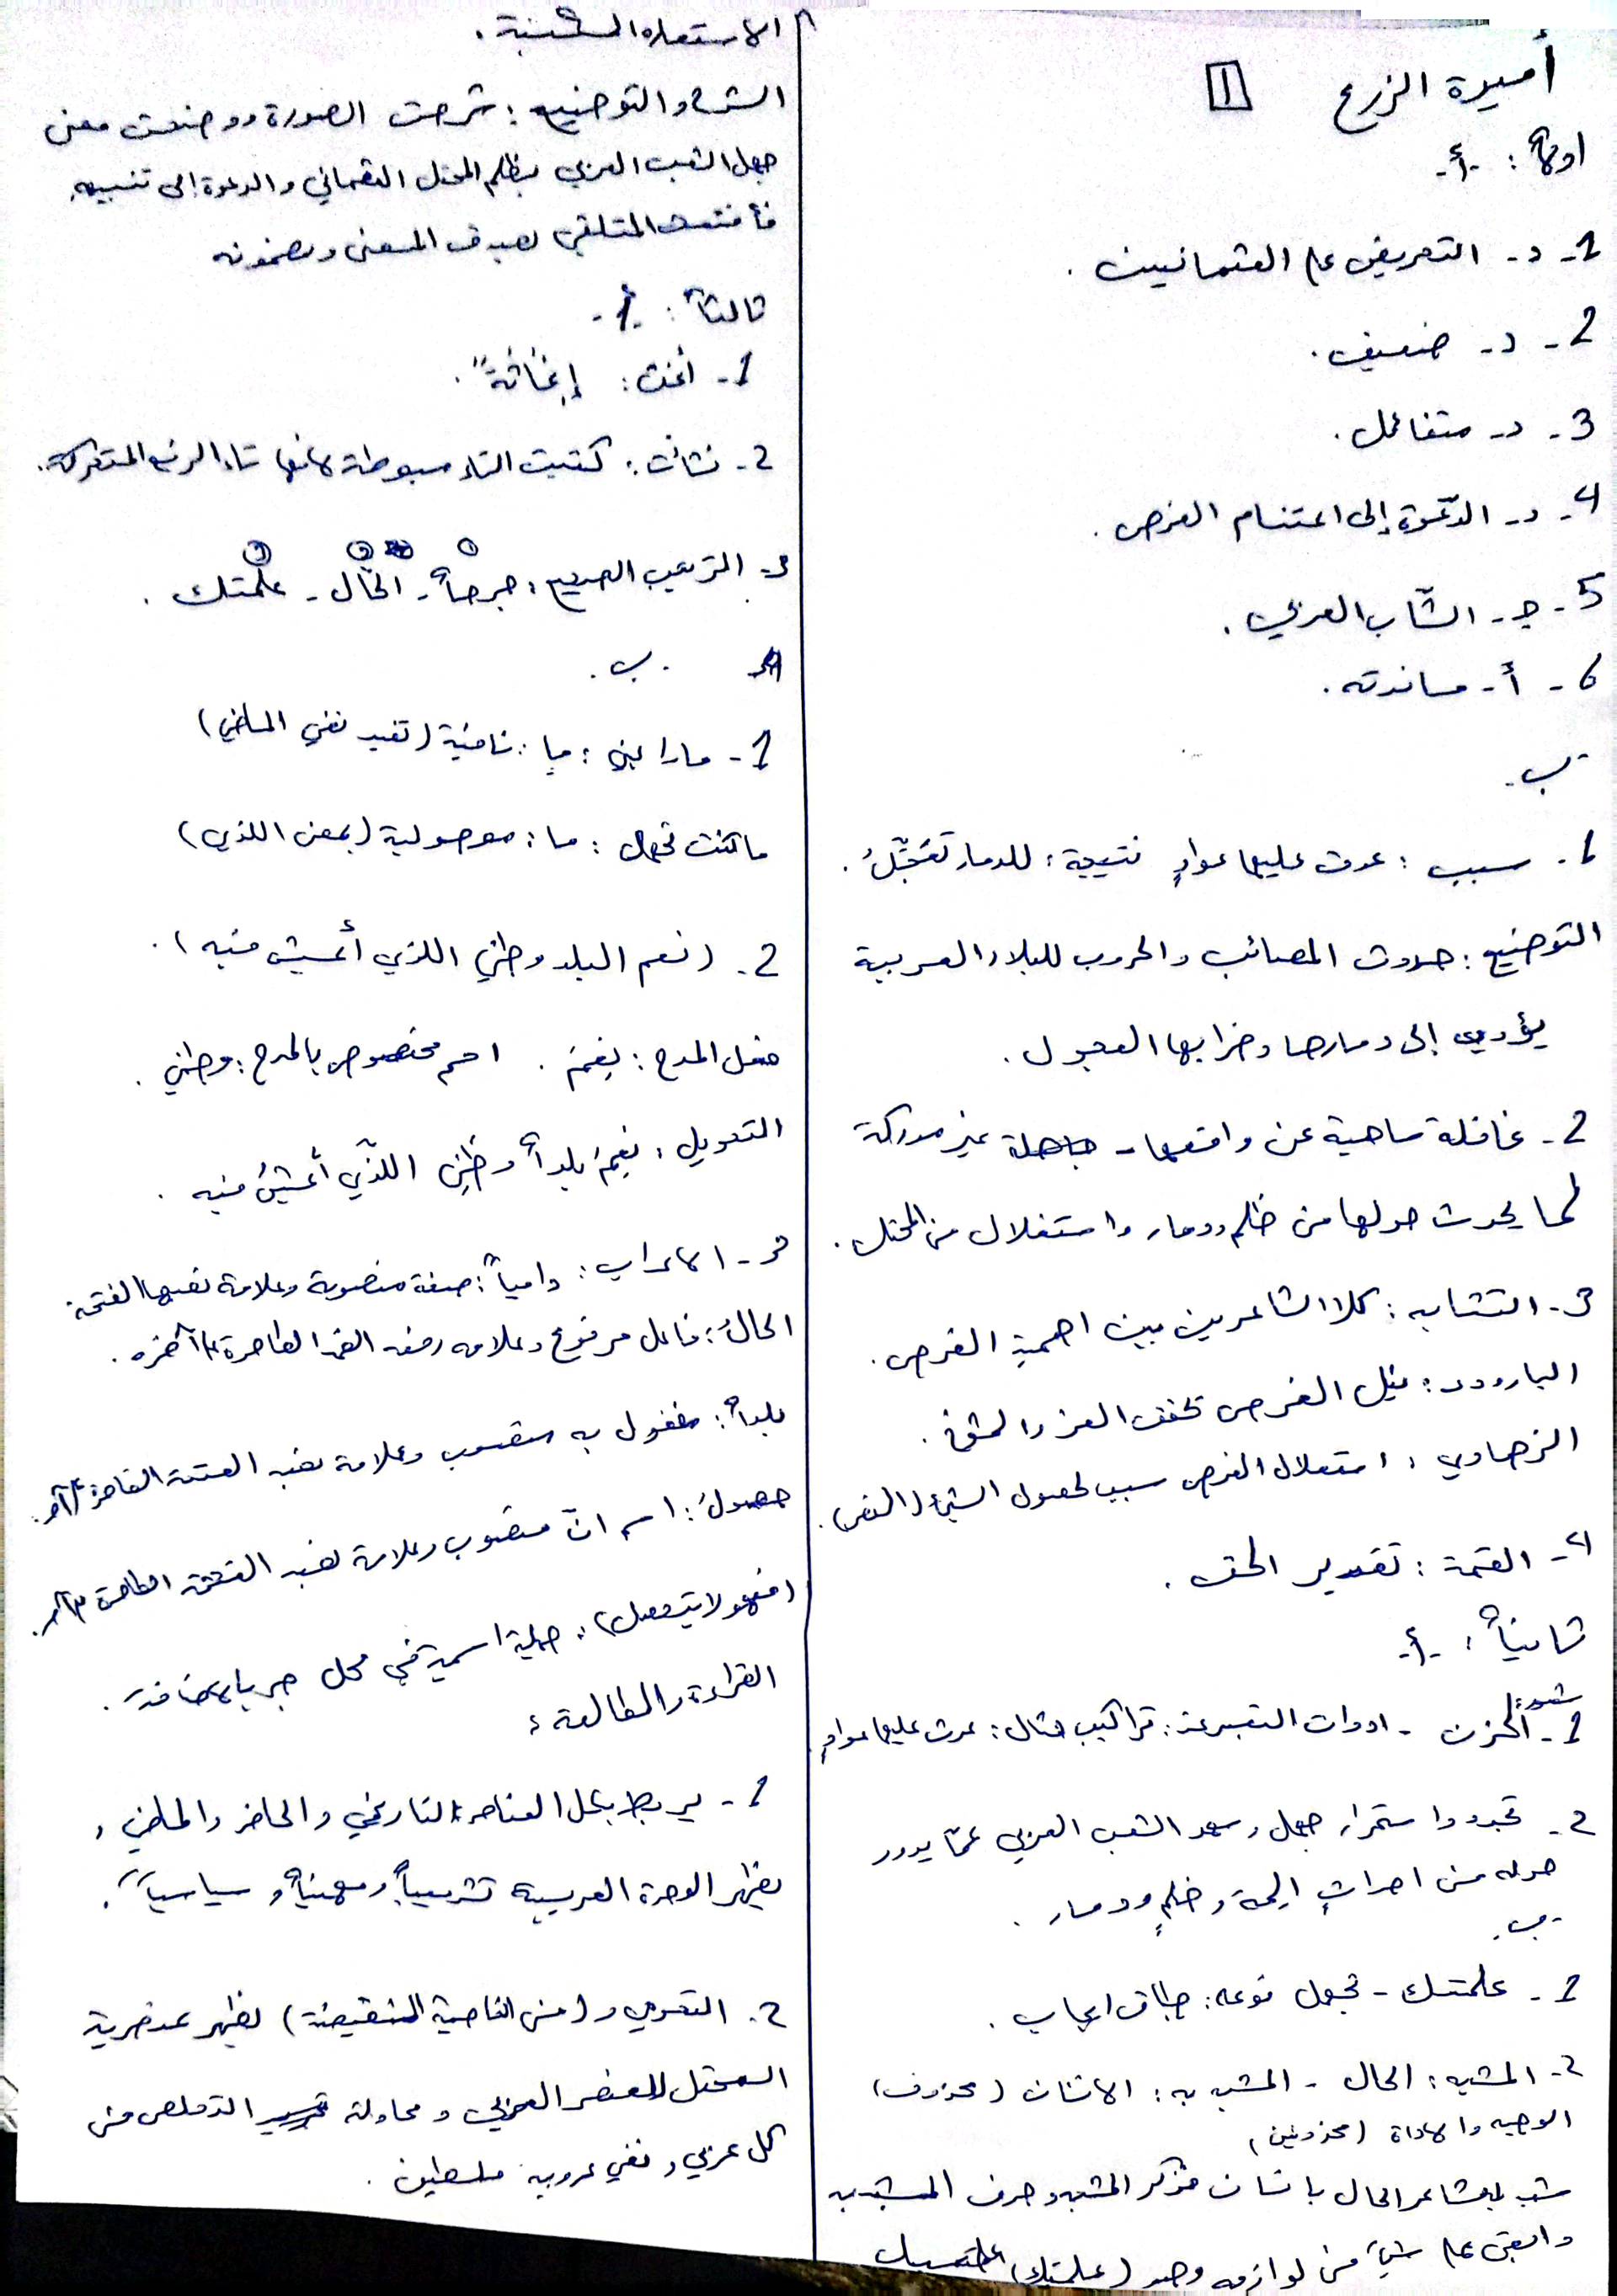 أميرة الزرع 1
اولاً: -أ-
1- د- التعريض على العثمانيين.
2- د- ضعيف.
3- د- متفاعل.
4- د- الدّعوة إلى اغتنام الفرص.
5- ج- الشّاب العربي.
6- أ- مساندته.
-ب-
1- سبب: عدت عليها عوادٍ نتيجة: للدمار تعجّلُ.
التوضيح: حدوث المصائب والحروب للبلاد العربية
يؤدي إلى دمارها وخرابها العجول.
2- غافلة ساهية عن واقعها - جاهلة غير مدركة
لما يحدث حولها من ظلم ودمار واستغلال من المحتل.
3- التشابه: كلا الشاعرين بين اهمية الفرص.
البارودي: نيل الفرص تحقق العز و
الزهاوي: استغلال الفرص سبب لحصول الشيء (النصر).
4- القيمة: تقدير الحق.
ثانياً: -أ-
1- شعور الحزن - ادوات التعبير عنه: تراكيب مثال: عدت عليها عوادٍ.
2- تجدد واستمرار جهل و الشعب العربي عمّا يدور
حوله من احداثٍ اليمة وظلمٍ ودمار.
-ب-
1- علمتك - تجهل نوعه: طباق ايجاب.
2- المشبه: الحال - المشبه به: الانسان (محذوف)
الوجه والاداة (محذوفين)
شبه الشاعر الحال بانسان فذكر المشبه وحذف المشبه به
وابقى على شيء من لوازمه وهو (علمتك) على سبيل
الاستعارة المكنية.
الشرح والتوضيح: شرحت الصورة ووضحت معنى
جهل الشعب العربي بظلم المحتل العثماني والدعوة إلى تنبيهه
فأقنعت المتلقي بصدق المعنى ومضمونه
ثالثاً: -أ-
1- أغث: إغاثةً.
2- نشأت: كتبت التاء مبسوطة لانها تاء الرفع المتحركة.
3- الترتيب الصحيح: جرحاً - الحال - علمتك.
-ب-
1- ما راعني: ما: نافية (تفيد نفي الماضي)
ما كنت تجهل: ما: موصولية (بمعنى اللذي)
2- (نعم البلد وطني اللذي أعيش فيه).
فعل المدح: نِعْمَ. اسم مخصوص بالمدح: وطني.
التحويل: نِعْمَ بلداً وطني اللّذي أعيشُ فيه.
3- الاعراب: دامياً: صفة منصوبة وعلامة نصبها الفتحة.
الحالُ: فاعل مرفوع وعلامة رفعه الضمة الظاهرة على آخره.
بلداً: مفعول به منصوب وعلامة نصبه الفتحة الظاهرة على آخره.
حصولَ: اسم انّ منصوب وعلامة نصبه الفتحة الظاهرة على آخره.
(فهو لا يتحصل): جملة اسمية في محل جر بالاضافة.
القراءة والمطالعة:
1- يربط بكل العناصر التاريخي والحاضر والماضي و
يظهر الوحدة العربية و وسياسياً.
2- القومي و(من الناحية النقيضة) يظهر عنصرية
المحتل للعنصر العربي ومحاولة التملص من
كل عربي ونفي عروبة فلسطين.